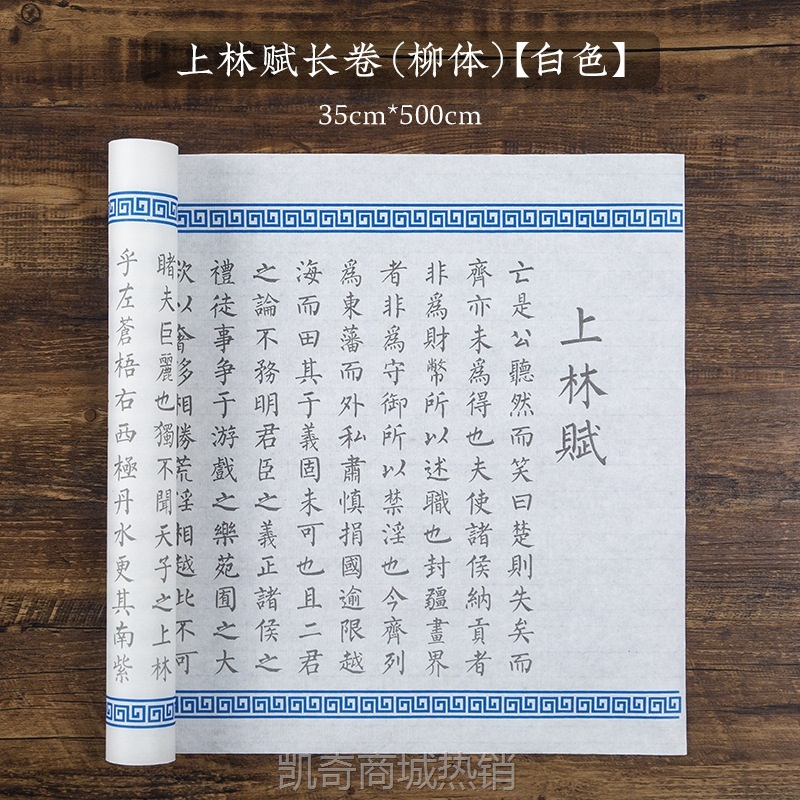 上林赋长卷(柳体)【白色】
35cm*500cm
上林賦
亡是公聽然而笑曰楚則失矣而
齊亦未為得也夫使諸侯納貢者
非為財幣所以述職也封疆畫界
者非為守御所以禁淫也今齊列
為東藩而外私肅慎捐國逾限越
海而田其于義固未可也且二君
之論不務明君臣之義正諸侯之
禮徒事爭于游戲之樂苑囿之大
欲以奢侈相勝荒淫相越此不可
睹夫巨麗也獨不聞天子之上林
乎左蒼梧右西極丹水更其南紫
凯奇商城热销